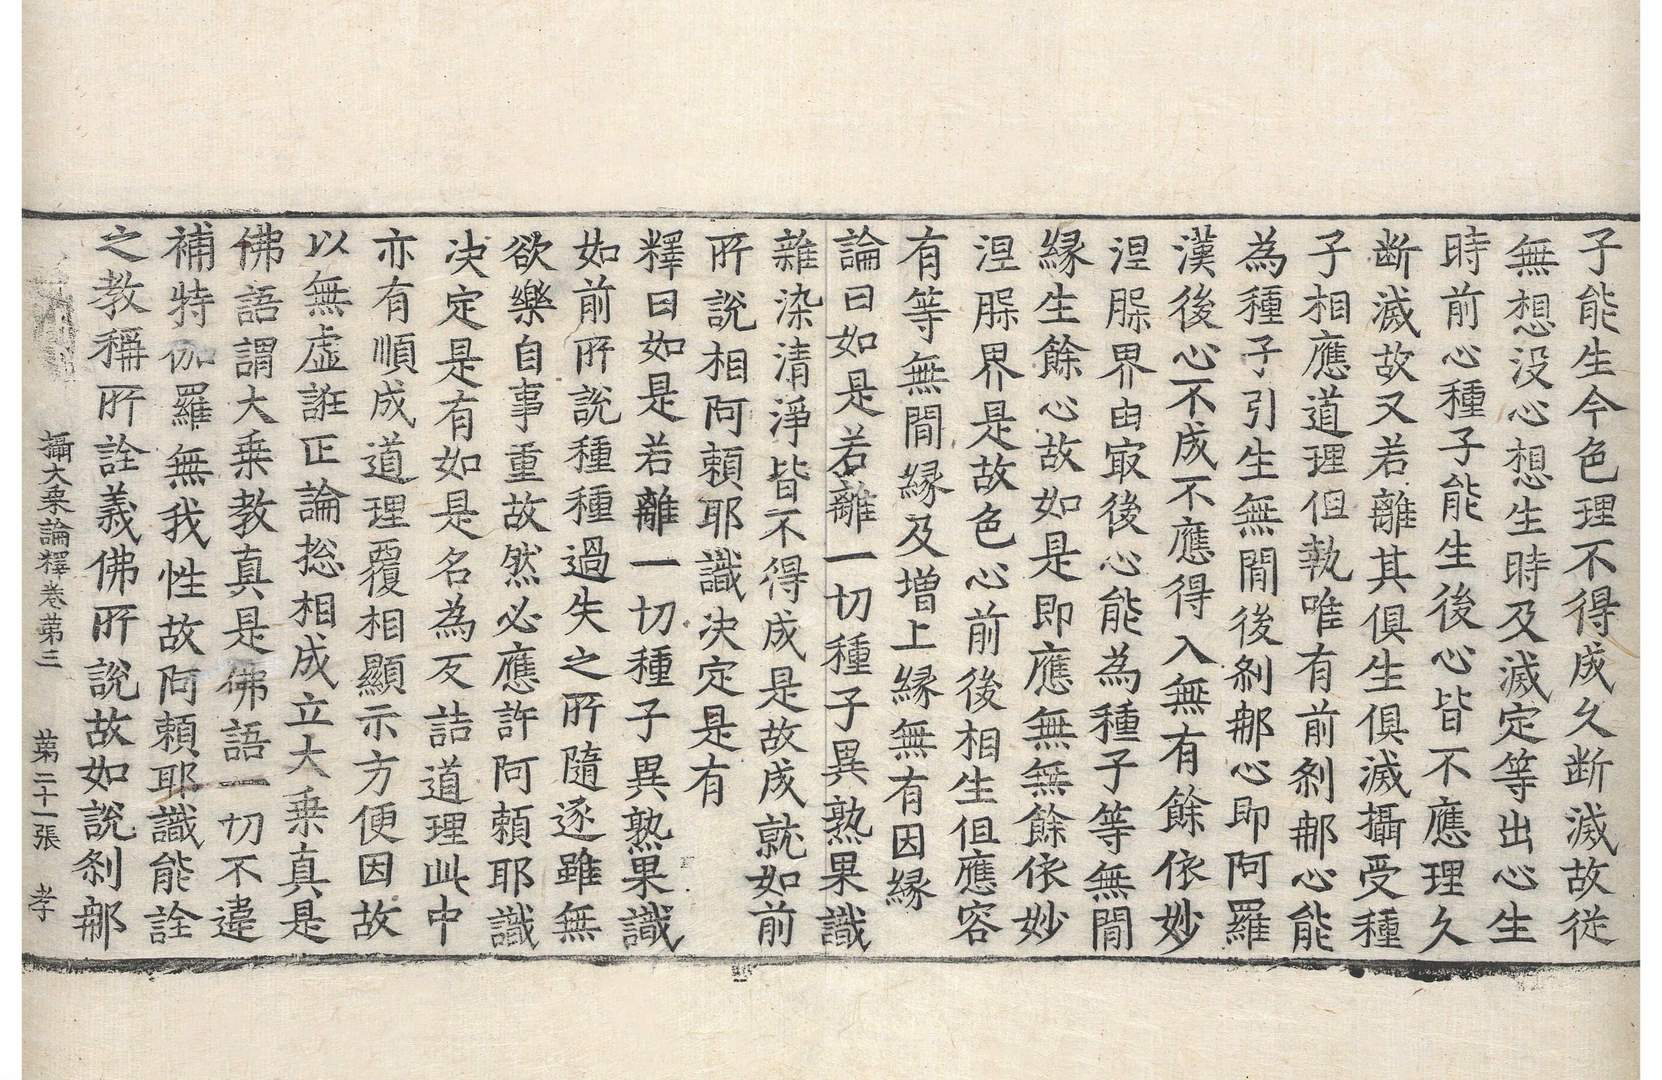 子能生今色理不得成久断滅故從
無想没心想生時及滅定等出心生
時前心種子能生後心皆不應理久
断滅故又若離其俱生俱滅攝受種
子相應道理但執唯有前刹那心能
為種子引生無間後刹那心即阿羅
漢後心不成不應得入無有餘依妙
涅槃界由㝡後心能為種子等無間
縁生餘心故如是即應無無餘依妙
涅槃界是故色心前後相生但應容
有等無間縁及增上縁無有因縁
論曰如是若離一切種子異熟果識
雜染清淨皆不得成是故成就如前
所說相阿賴耶識决定是有
釋曰如是若離一切種子異熟果識
如前所說種種過失之所隨逐雖無
欲樂自事重故然必應許阿賴耶識
决定是有如是名為反詰道理此中
亦有順成道理覆相顯示方便因故
以無虛誑正論揔相成立大乗真是
佛語謂大乗教真是佛語一切不違
補特伽羅無我性故阿賴耶識能詮
之教稱所詮義佛所說故如說刹那
攝大乗論釋卷苐三 苐二十一張 孝